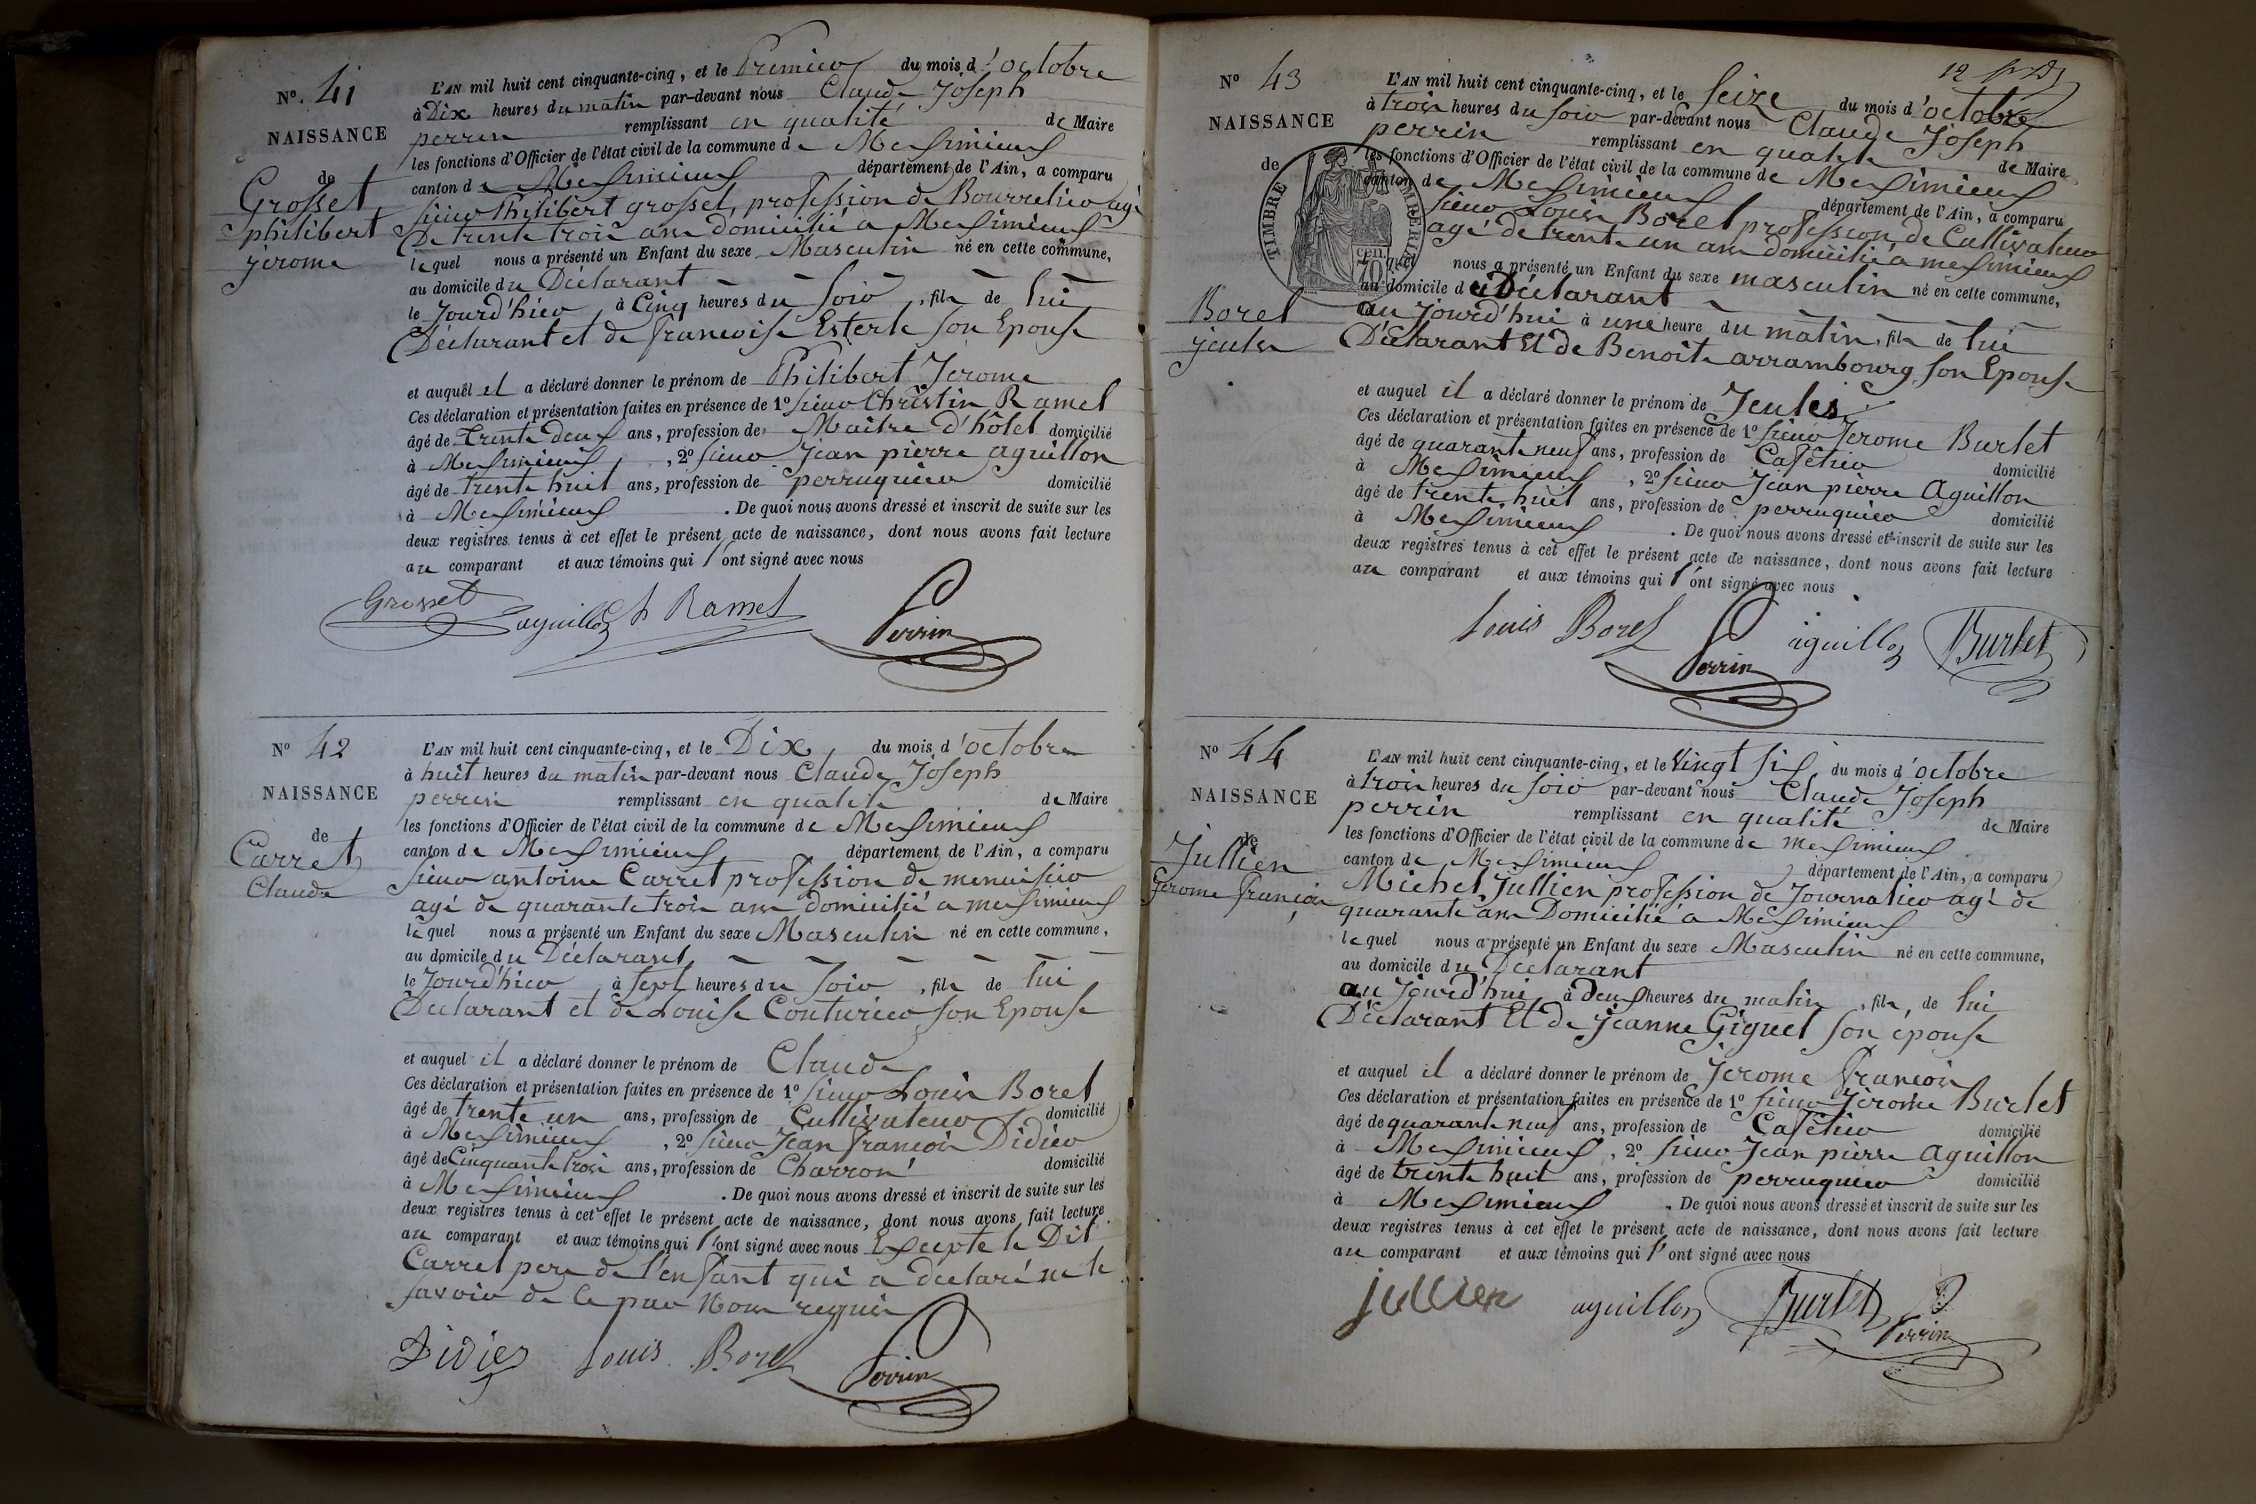 Nº 41
NAISSANCE
de
Grosset
philibert
jerome
L'AN mil huit cent cinquante-cinq, et le Premier du mois d'octobre
à Dix heures du matin par-devant nous Claude Joseph
perrin remplissant en qualité de Maire
les fonctions d'Officier de l'état civil de la commune de Meximieux
canton de Meximieux département de l'Ain, a comparu
sieur Philibert grosset, profession de Bourrelier agé
De trente trois ans domicilié a Meximieux
lequel nous a présenté un Enfant du sexe Masculin né en cette commune,
au domicile du Déclarant
le Jourd'hier à Cinq heures du soir, fils de lui
Déclarant et de francoise Esterle son Epouse
et auquel il a déclaré donner le prénom de Philibert Jerome
Ces déclaration et présentation faites en présence de 1º sieur Christin Ramel
âgé de trente deux ans, profession de Maitre d'hôtel domicilié
à Meximieux, 2º sieur Jean pierre aguillon
âgé de trente huit ans, profession de perruquier domicilié
à Meximieux. De quoi nous avons dressé et inscrit de suite sur les
deux registres tenus à cet effet le présent acte de naissance, dont nous avons fait lecture
au comparant et aux témoins qui l'ont signé avec nous
Grosset aguillon Ch Ramel Perrin
Nº 42
NAISSANCE
de
Carret
Claude
L'AN mil huit cent cinquante-cinq, et le Dix du mois d'octobre
à huit heures du matin par-devant nous Claude Joseph
perrin remplissant en qualité de Maire
les fonctions d'Officier de l'état civil de la commune de Meximieux
canton de Meximieux département de l'Ain, a comparu
sieur antoine Carret profession de menuisier
agé de quarante trois ans domicilié a meximieux
lequel nous a présenté un Enfant du sexe Masculin né en cette commune,
au domicile du Déclarant
le Jourd'hier à sept heures du soir, fils de lui
Déclarant et de Louise Couturier son Epouse
et auquel il a déclaré donner le prénom de Claude
Ces déclaration et présentation faites en présence de 1º sieur Louis Borel
âgé de trente un ans, profession de Cultivateur domicilié
à Meximieux, 2º sieur Jean francois Didier
âgé de Cinquante trois ans, profession de Charron domicilié
à Meximieux. De quoi nous avons dressé et inscrit de suite sur les
deux registres tenus à cet effet le présent acte de naissance, dont nous avons fait lecture
au comparant et aux témoins qui l'ont signé avec nous Excepté le Dit
Carret pere de l'enfant qui a déclaré ne le
savoir de ce par Nous requis
Didier Louis Borel Perrin
12
Nº 43
NAISSANCE
de
TIMBRE IMPERIAL
70 cen.
Borel
jeules
L'AN mil huit cent cinquante-cinq, et le seize du mois d'octobre
à trois heures du soir par-devant nous Claude Joseph
perrin remplissant en qualité de Maire
les fonctions d'Officier de l'état civil de la commune de Meximieux
canton de Meximieux département de l'Ain, a comparu
sieur Louis Borel profession de Cultivateur
agé de trente un ans domicilié a meximieux
lequel nous a présenté un Enfant du sexe masculin né en cette commune,
au domicile du Déclarant
au Jourd'hui à une heure du matin, fils de lui
Déclarant Et de Benoite arrambourg son Epouse
et auquel il a déclaré donner le prénom de Jeules
Ces déclaration et présentation faites en présence de 1º sieur Jerome Burlet
âgé de quarante neuf ans, profession de Cafetier domicilié
à Meximieux, 2º sieur Jean pierre Aguillon
âgé de trente huit ans, profession de perruquier domicilié
à Meximieux. De quoi nous avons dressé et inscrit de suite sur les
deux registres tenus à cet effet le présent acte de naissance, dont nous avons fait lecture
au comparant et aux témoins qui l'ont signé avec nous
Louis Borel Perrin aguillon Burlet
Nº 44
NAISSANCE
de
Jullien
Jerome francois
L'AN mil huit cent cinquante-cinq, et le Vingt six du mois d'octobre
à trois heures du soir par-devant nous Claude Joseph
perrin remplissant en qualité de Maire
les fonctions d'Officier de l'état civil de la commune de meximieux
canton de Meximieux département de l'Ain, a comparu
Michel Jullien profession de Journalier agé de
quarante ans Domicilié a Meximieux
lequel nous a présenté un Enfant du sexe Masculin né en cette commune,
au domicile du Déclarant
au Jourd'hui à Deux heures du matin, fils de lui
Déclarant Et de Jeanne Giguet son epouse
et auquel il a déclaré donner le prénom de Jerome francois
Ces déclaration et présentation faites en présence de 1º sieur Jerome Burlet
âgé de quarante neuf ans, profession de Cafetier domicilié
à Meximieux, 2º sieur Jean pierre Aguillon
âgé de trente huit ans, profession de perruquier domicilié
à Meximieux. De quoi nous avons dressé et inscrit de suite sur les
deux registres tenus à cet effet le présent acte de naissance, dont nous avons fait lecture
au comparant et aux témoins qui l'ont signé avec nous
jullien aguillon Burlet Perrin